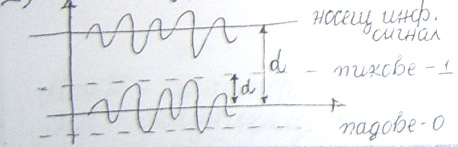 носещ инф.
сигнал
d
d
- пикове - 1
падове - 0